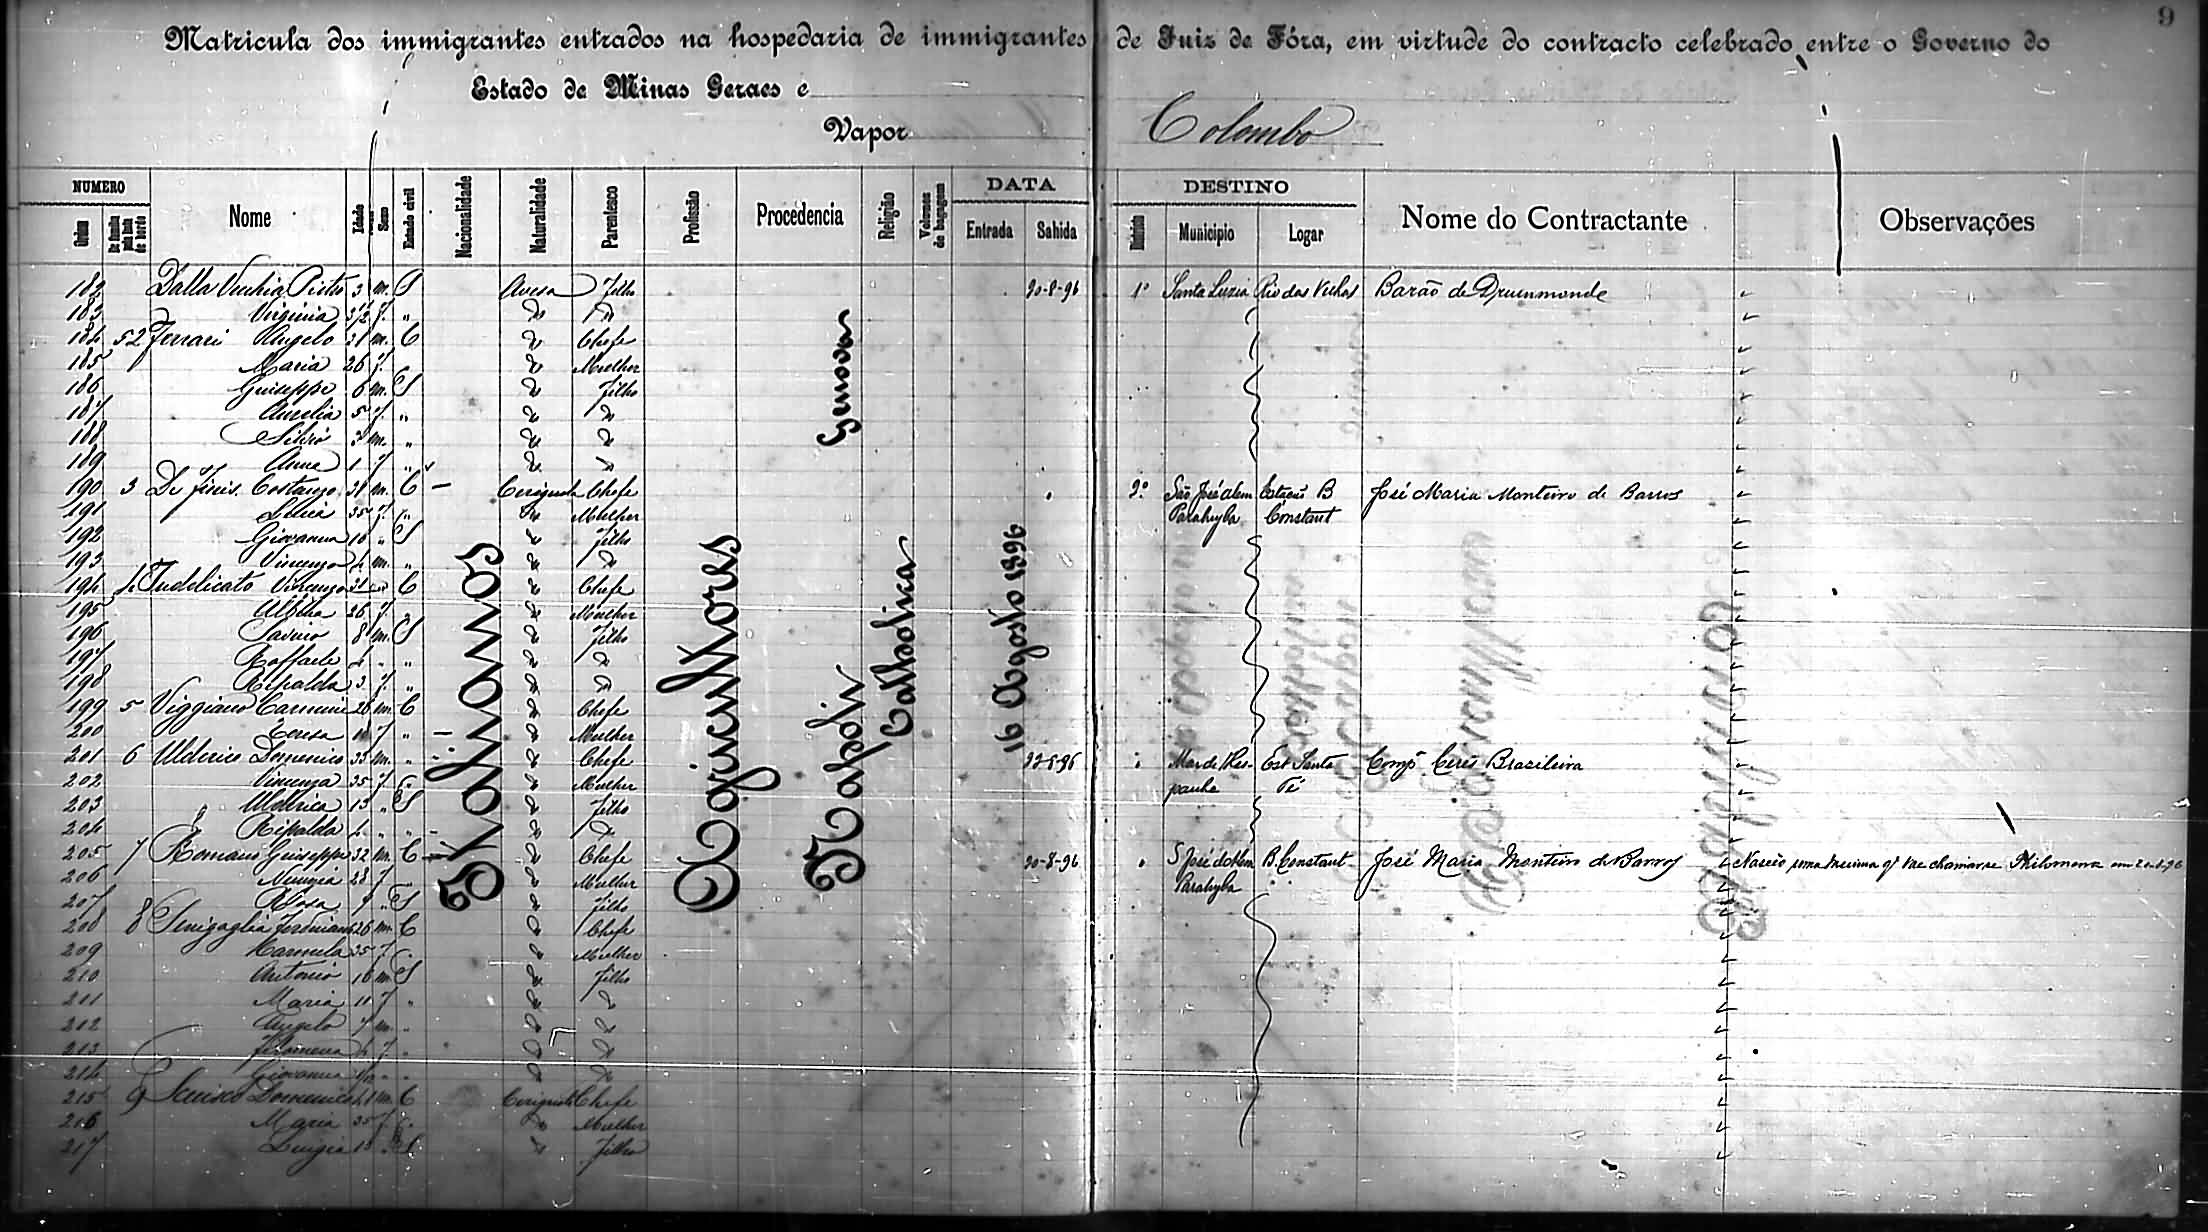 9
Matricula dos immigrantes entrados na hospedaria de immigrantes de Juiz de Fóra, em virtude do contracto celebrado entre o Governo do
Estado de Minas Geraes e
Vapor Colombo
NUMERO DATA DESTINO
Ordem Nome Idade Sexo Estado civil Nacionalidade Naturalidade Parentesco Profissão Procedencia Religião Volumes de bagagem Entrada Sahida Districto Municipio Logar Nome do Contractante Observações
Italianos Agricultores Genova Napoli Catholica 16 Agosto 1896
182 Dalla Vecchia Pietro 3 m. S Avesa Filho 20-8-96 1º Santa Luzia Rio das Velhas Barão de Drummonde
183 Virginia f. "
184 52 Ferrari Angelo 31 m. C Chefe
185 Maria 26 f. Mulher
186 Guiseppe 6 m. S Filho
187 Aurelia 5 f. "
188 Silvio 3 m. "
189 Anna 1 f "
190 3 De Finis Costanzo 31 m. C Cerignola Chefe 2º São José d'alem Estação B José Maria Monteiro de Barros
191 35 f. Mulher Parahyba Constant
192 Giovanna 10 " S Filho
193 Vincenzo 4 m. "
194 4 Indelicato Vincenzo 31 " C Chefe
195 26 f. Mulher
196 Saverio 8 m. S Filho
197 Raffaele 4 " "
198 Ripalda 3 f. "
199 5 Viggiano Carmine 26 m. C Chefe
200 Teresa 18 f " Mulher
201 6 Ulderico Domenico 33 m. " Chefe 22-8-96 Mar de Hes- Est Santa Comp Ceres Brasileira
202 Vincenza 35 f. C. Mulher panha Fé
203 Ulderica 13 " S Filho
204 Ripalda 4 " "
205 7 Romano Guiseppe 32 m. C Chefe 20-8-96 S José d'alem B. Constant José Maria Monteiro de Barros Nasceo uma menina q' vae chamar-se Philomena em
206 Nunzia 28 f Mulher Parahyba
207 Rosa 7 " S Filho
208 8 Senigaglia Ferdinando 26 m. C Chefe
209 Carmela 35 f. C. Mulher
210 Antonio 16 m S Filho
211 Maria 11 f "
212 Angelo 7 m. "
213 Filomena 4 f. "
214 Giovanna "
215 9 Domenico 41 m. C Cerignola Chefe
216 Maria 35 f. C. Mulher
217 Luigia 18 " S Filho